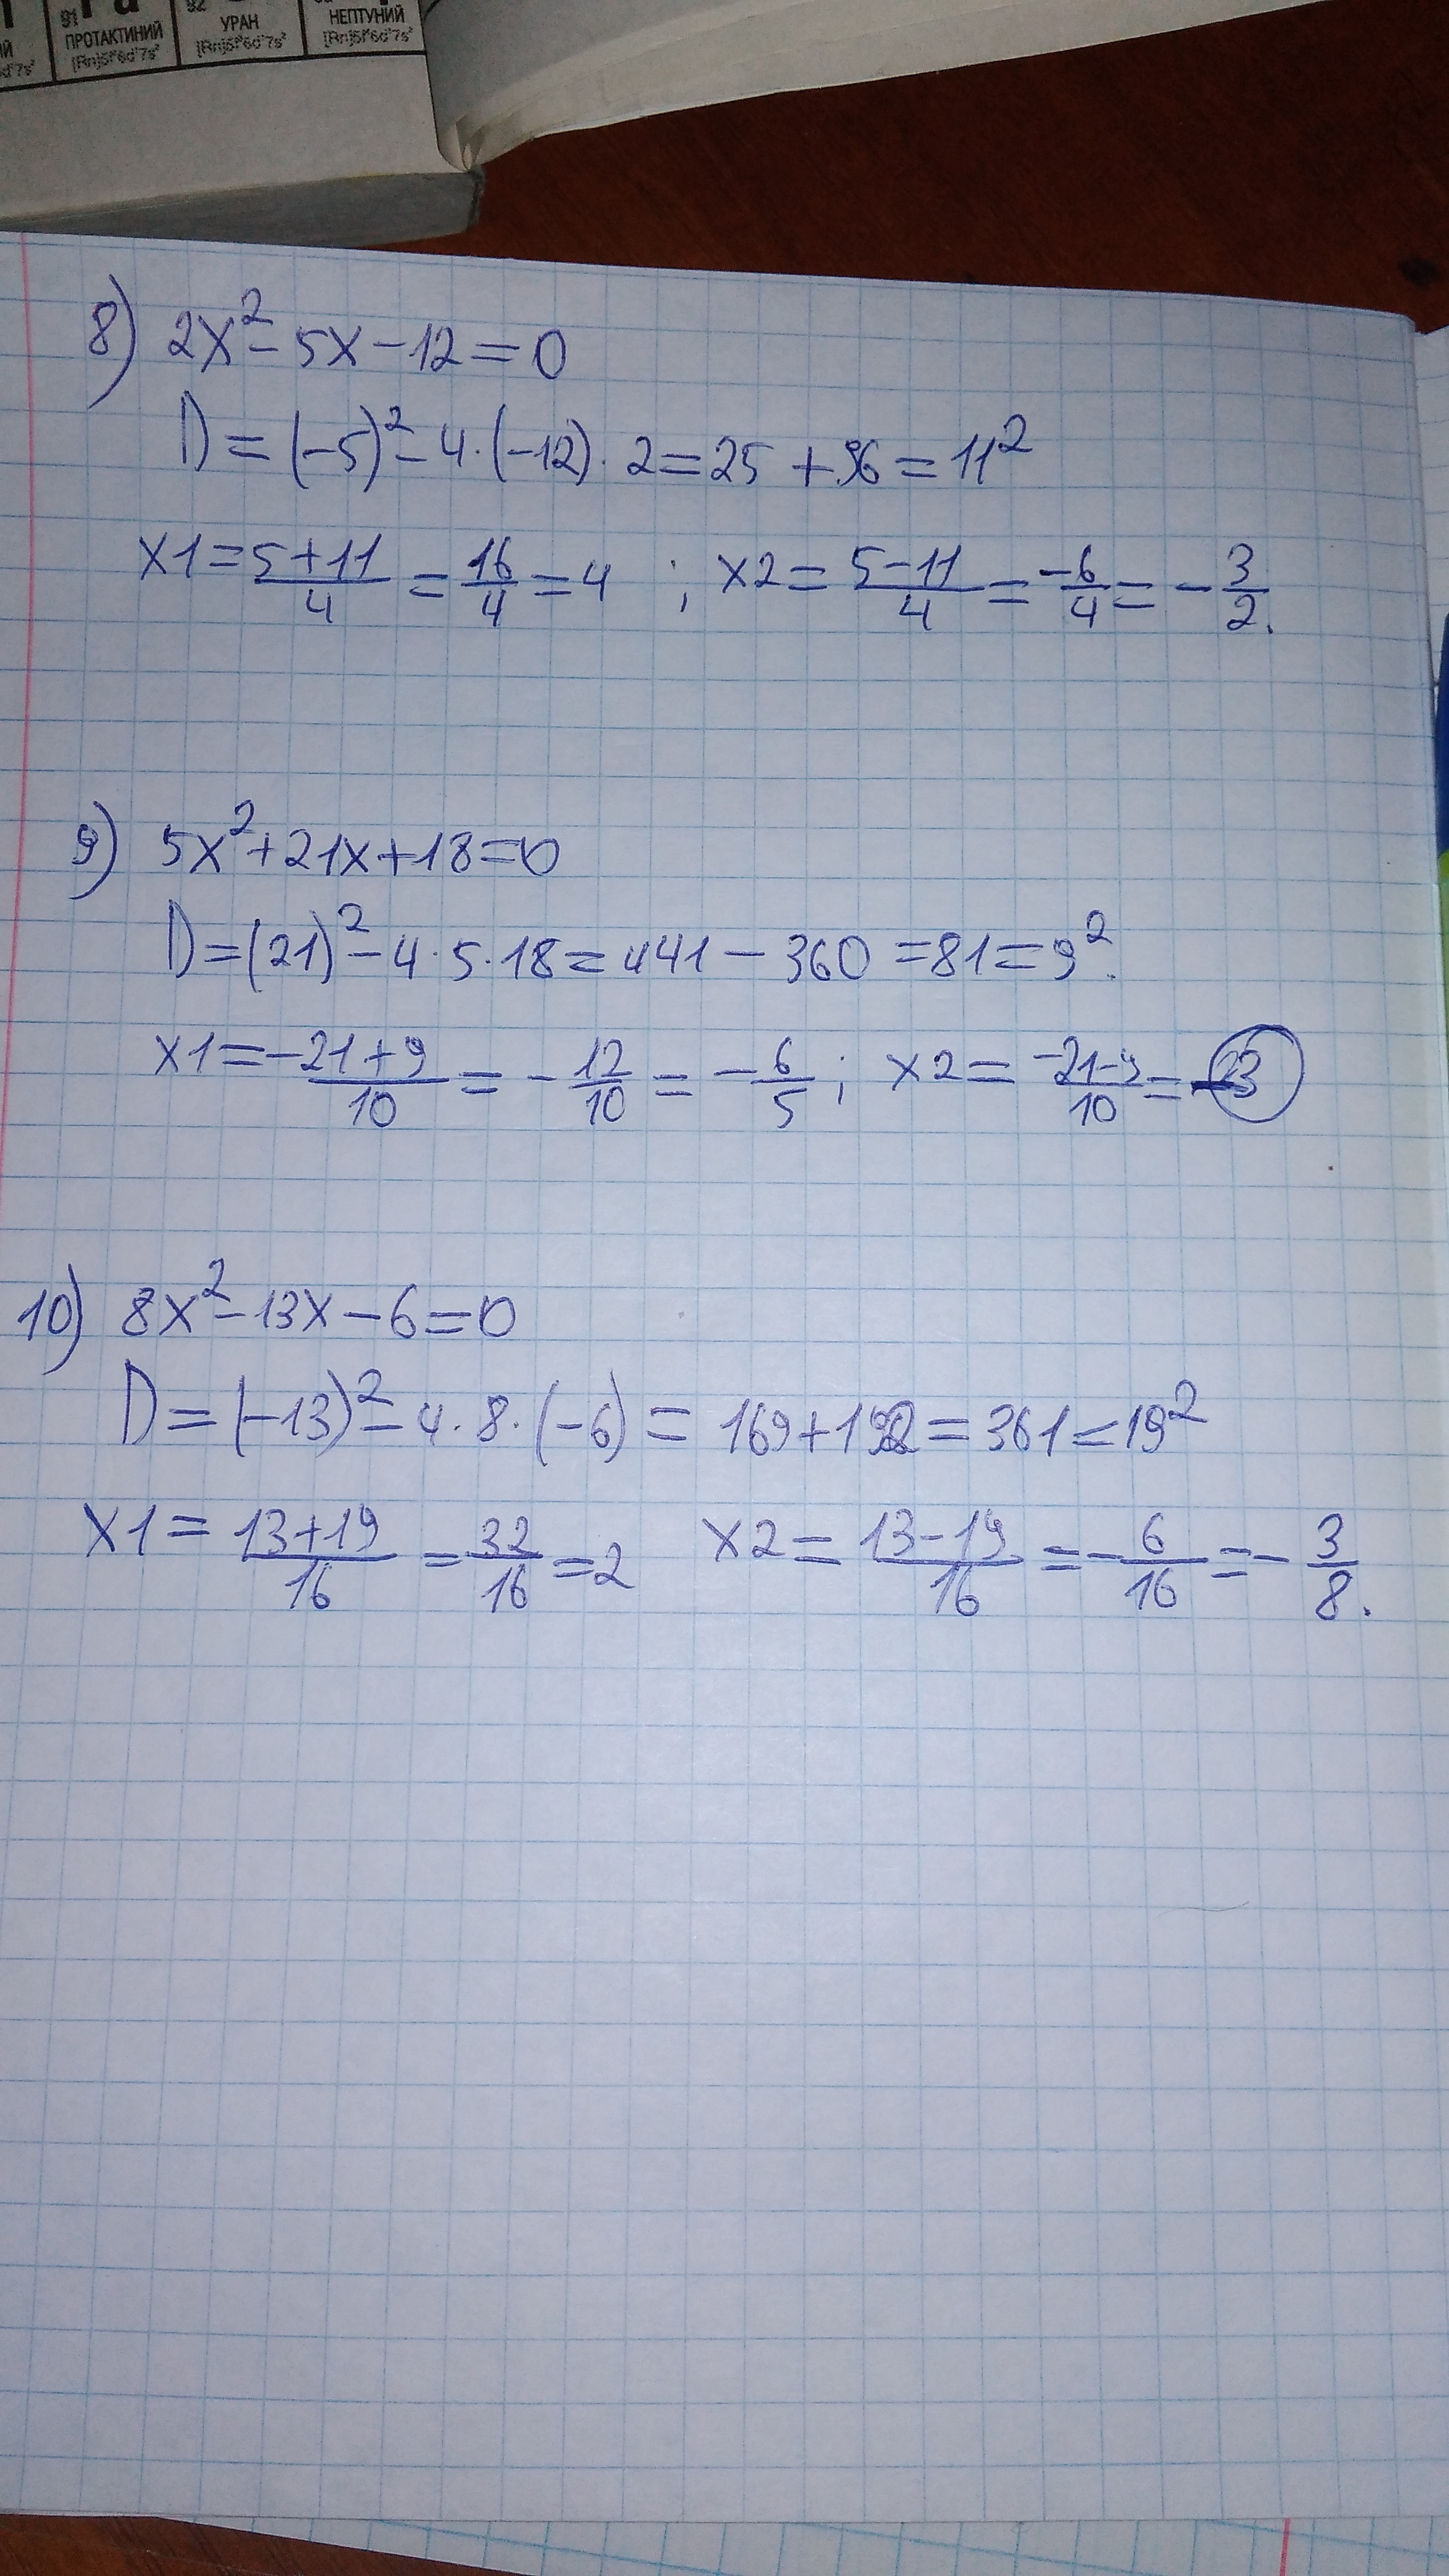 91
92
ПРОТАКТИНИЙ
УРАН
НЕПТУНИЙ
8) 2x² - 5x - 12 = 0
D = (-5)² - 4 · (-12) · 2 = 25 + 96 = 11²
x1 = 5+11/4 = 16/4 = 4 ; x2 = 5-11/4 = -6/4 = - 3/2.
9) 5x² + 21x + 18 = 0
D = (21)² - 4 · 5 · 18 = 441 - 360 = 81 = 9².
x1 = -21+9/10 = - 12/10 = - 6/5 ; x2 = -21-9/10 = -3
10) 8x² - 13x - 6 = 0
D = (-13)² - 4 · 8 · (-6) = 169 + 192 = 361 = 19²
x1 = 13+19/16 = 32/16 = 2 x2 = 13-19/16 = - 6/16 = - 3/8.